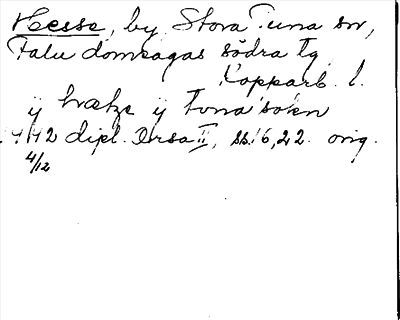 Hesse, by Stora Tuna sn,
Falu domsagas södra tg
Kopparb. l.
ÿ hœsze ÿ tuna sokn
1442 dipl. Orsa II, ss. 16, 22. orig.
4/12